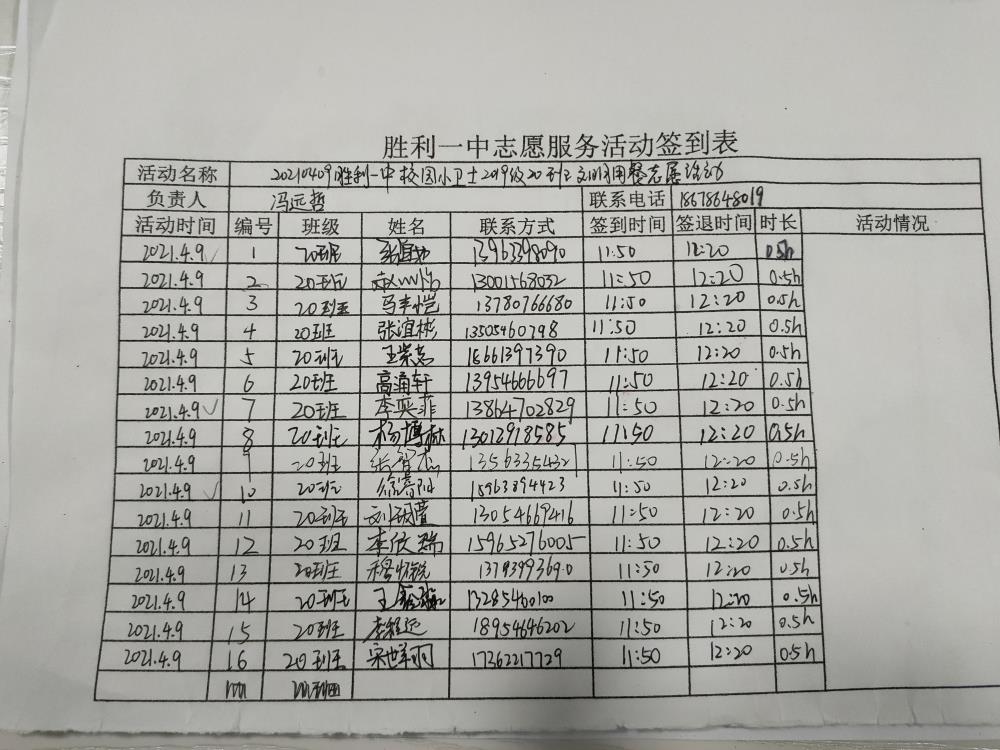 胜利一中志愿服务活动签到表
活动名称 20210409胜利一中校园小卫士2019级20班文明用餐志愿活动
负责人 冯远哲 联系电话 18678648019
活动时间 编号 班级 姓名 联系方式 签到时间 签退时间 时长 活动情况
2021.4.9 1 20班 13963398090 11:50 12:20 0.5h
2021.4.9 2 20班 13001568032 11:50 12:20 0.5h
2021.4.9 3 20班 马丰恺 13780766680 11:50 12:20 0.5h
2021.4.9 4 20班 张谊彬 13505460798 11:50 12:20 0.5h
2021.4.9 5 20班 18661397390 11:50 12:20 0.5h
2021.4.9 6 20班 高涌轩 13954666697 11:50 12:20 0.5h
2021.4.9 7 20班 李奕菲 13864702829 11:50 12:20 0.5h
2021.4.9 8 20班 杨博赫 13012918585 11:50 12:20 0.5h
2021.4.9 9 20班 13563354321 11:50 12:20 0.5h
2021.4.9 10 20班 18963894423 11:50 12:20 0.5h
2021.4.9 11 20班 13054669416 11:50 12:20 0.5h
2021.4.9 12 20班 李欣瑞 15965276005 11:50 12:20 0.5h
2021.4.9 13 20班 11:50 12:20 0.5h
2021.4.9 14 20班 11:50 12:20 0.5h
2021.4.9 15 20班 李程运 18954646202 11:50 12:20 0.5h
2021.4.9 16 20班 宋世祥雨 17362217729 11:50 12:20 0.5h